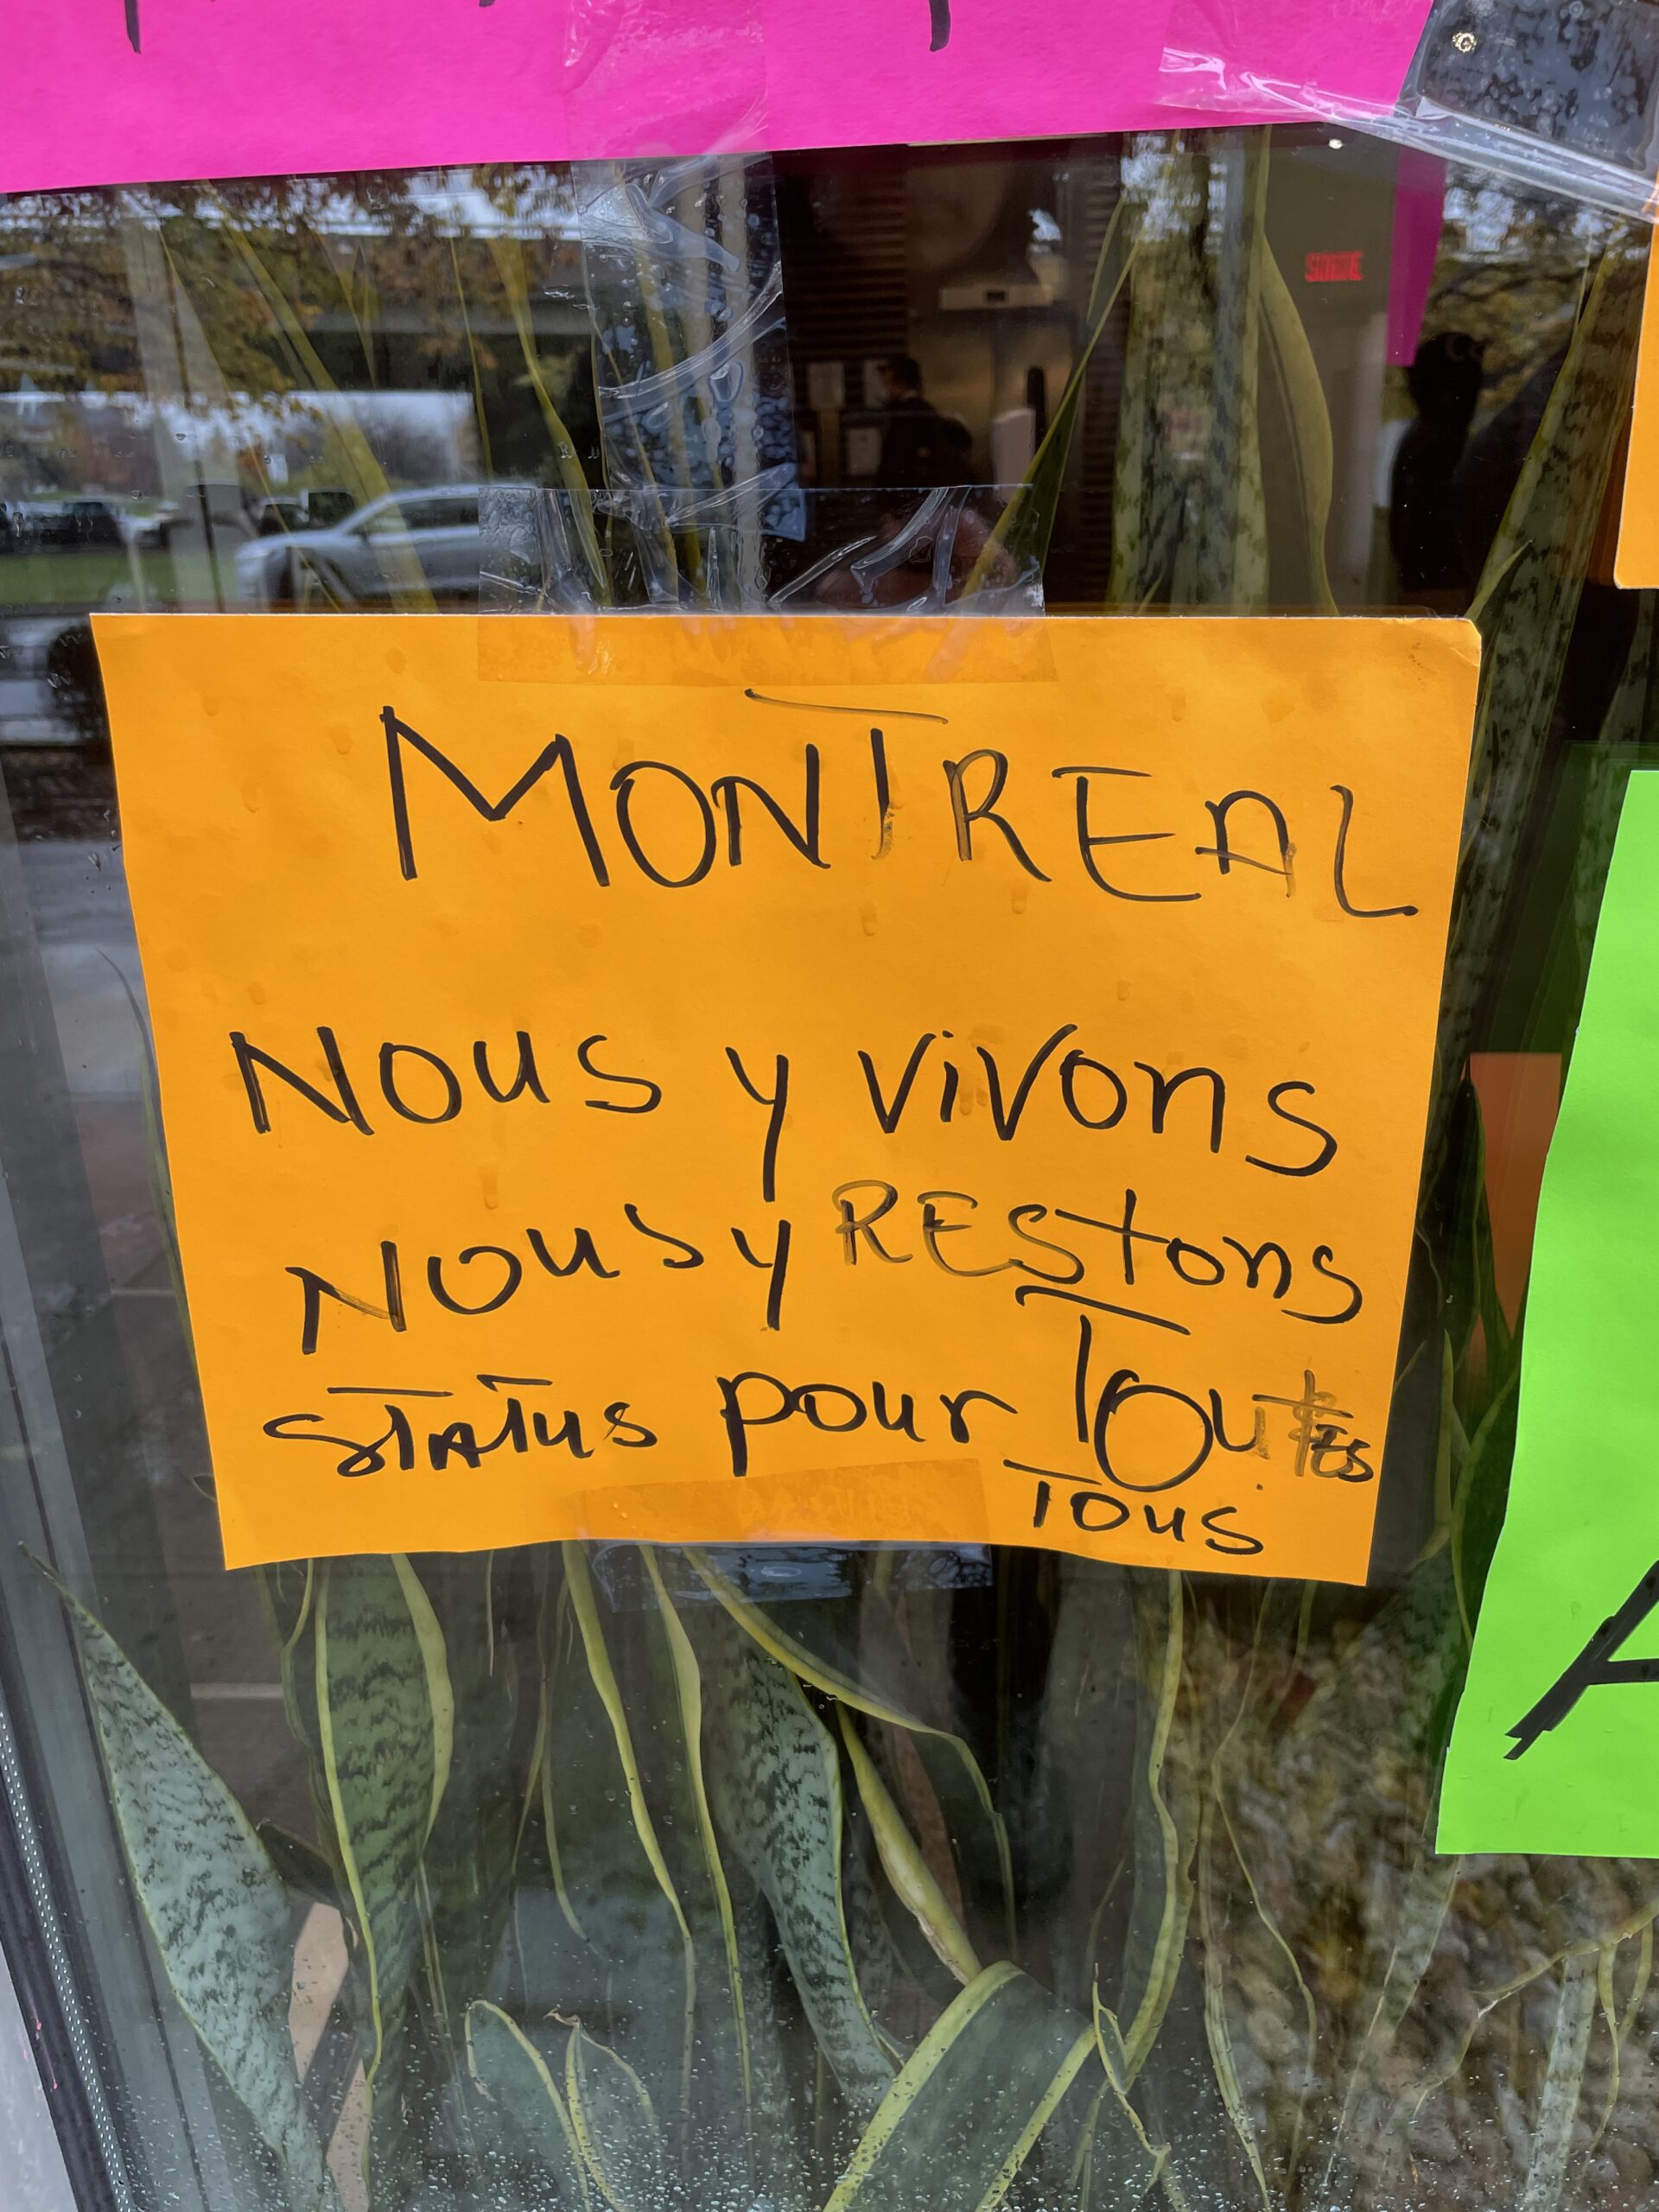 SORTIE
MONTREAL
NOUS y vivons
NOUS y RESTONS
STATUS pour TOUTES
TOUS
A